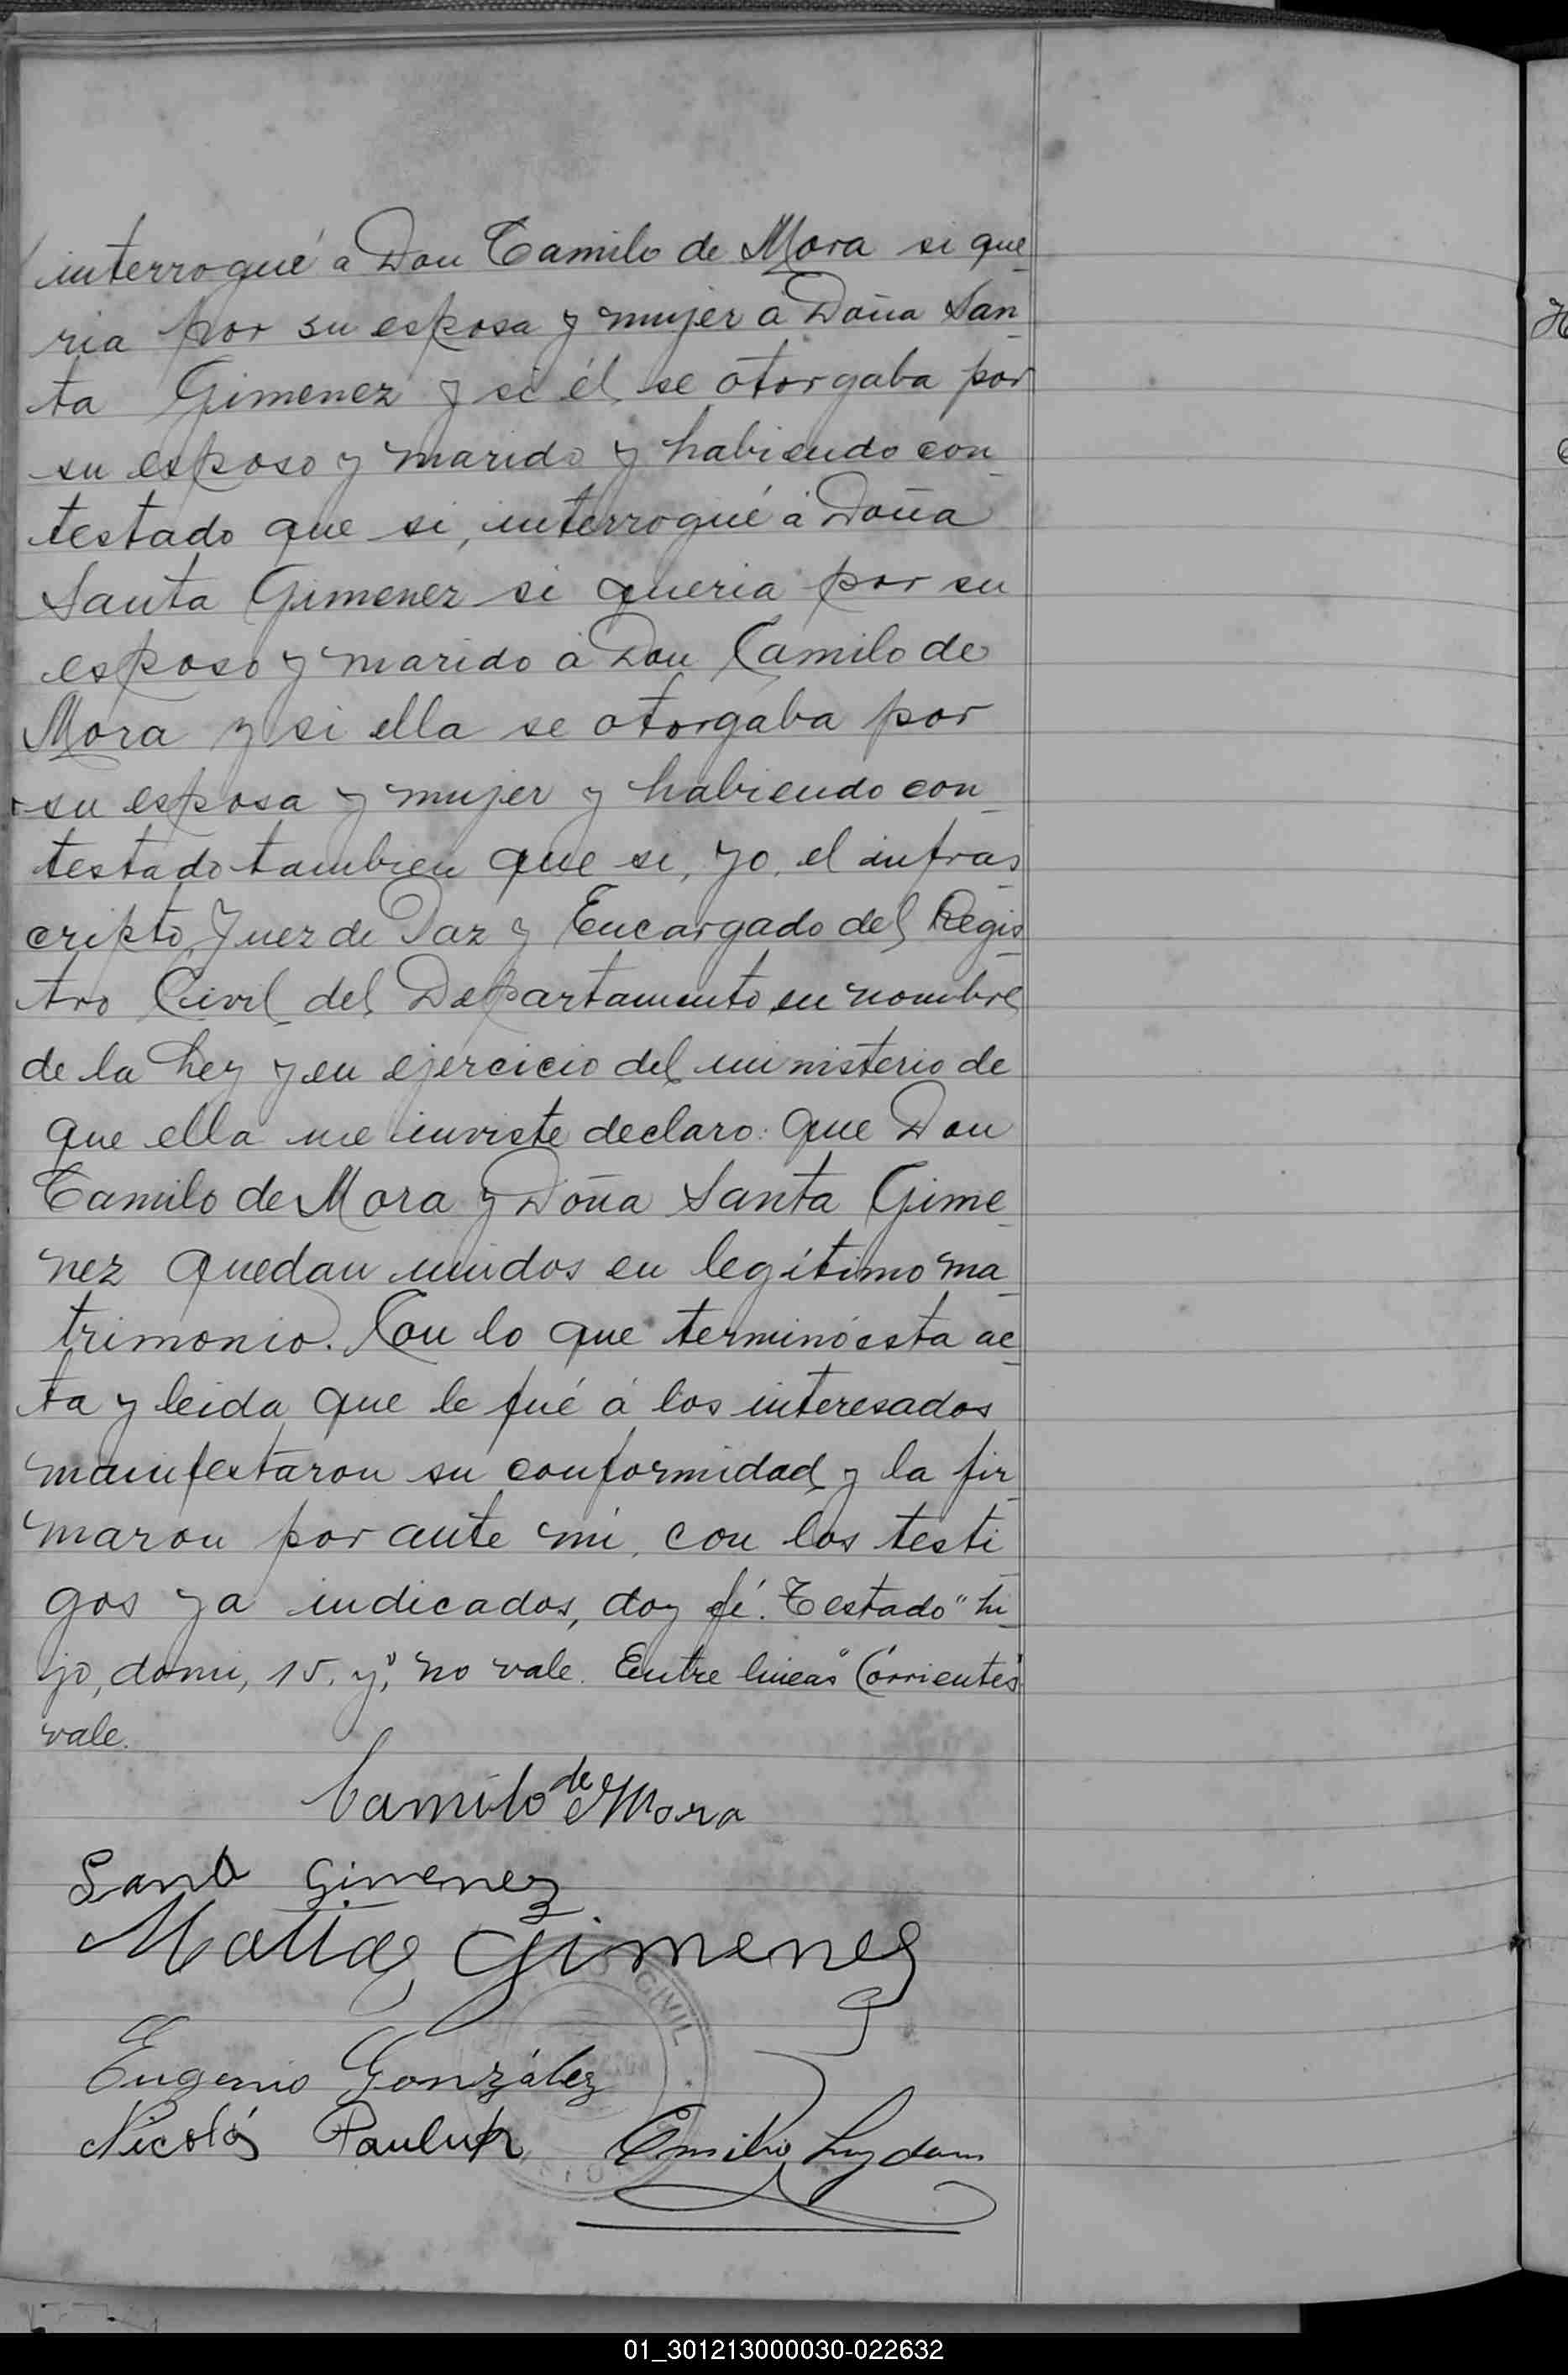 interrogué á Don Camilo de Mora si que_
ria por su esposa y mujer á Doña San_
ta Gimenez y si él se otorgaba por
su esposo y marido y habiendo con_
testado que si, interrogué á Doña
Santa Gimenez si queria por su
esposo y marido á Don Camilo de
Mora y si ella se otorgaba por
su esposa y mujer y habiendo con_
testado tambien que si, yo, el infras_
cripto, Juez de Paz y Encargado del Regis_
tro Civil del Departamento en nombre
de la Ley y en ejercicio del ministerio de
que ella me inviste declaro: que Don
Camilo de Mora y Doña Santa Gime_
nez quedan unidos en legítimo ma_
trimonio. Con lo que terminó esta ac_
ta y leida que le fué á los interesados
manifestaron su conformidad y la fir_
maron por ante mi, con los testi_
gos ya indicados, doy fé. Testado "hi_
jo, domi, 15, y", no vale. Entre lineas "Corrientes"
vale.
Camilo de Mora
Santa Gimenez
Matias Gimenez
CIVIL
Eugenio González
Nicolás Pauluk Emilio
01_301213000030-022632